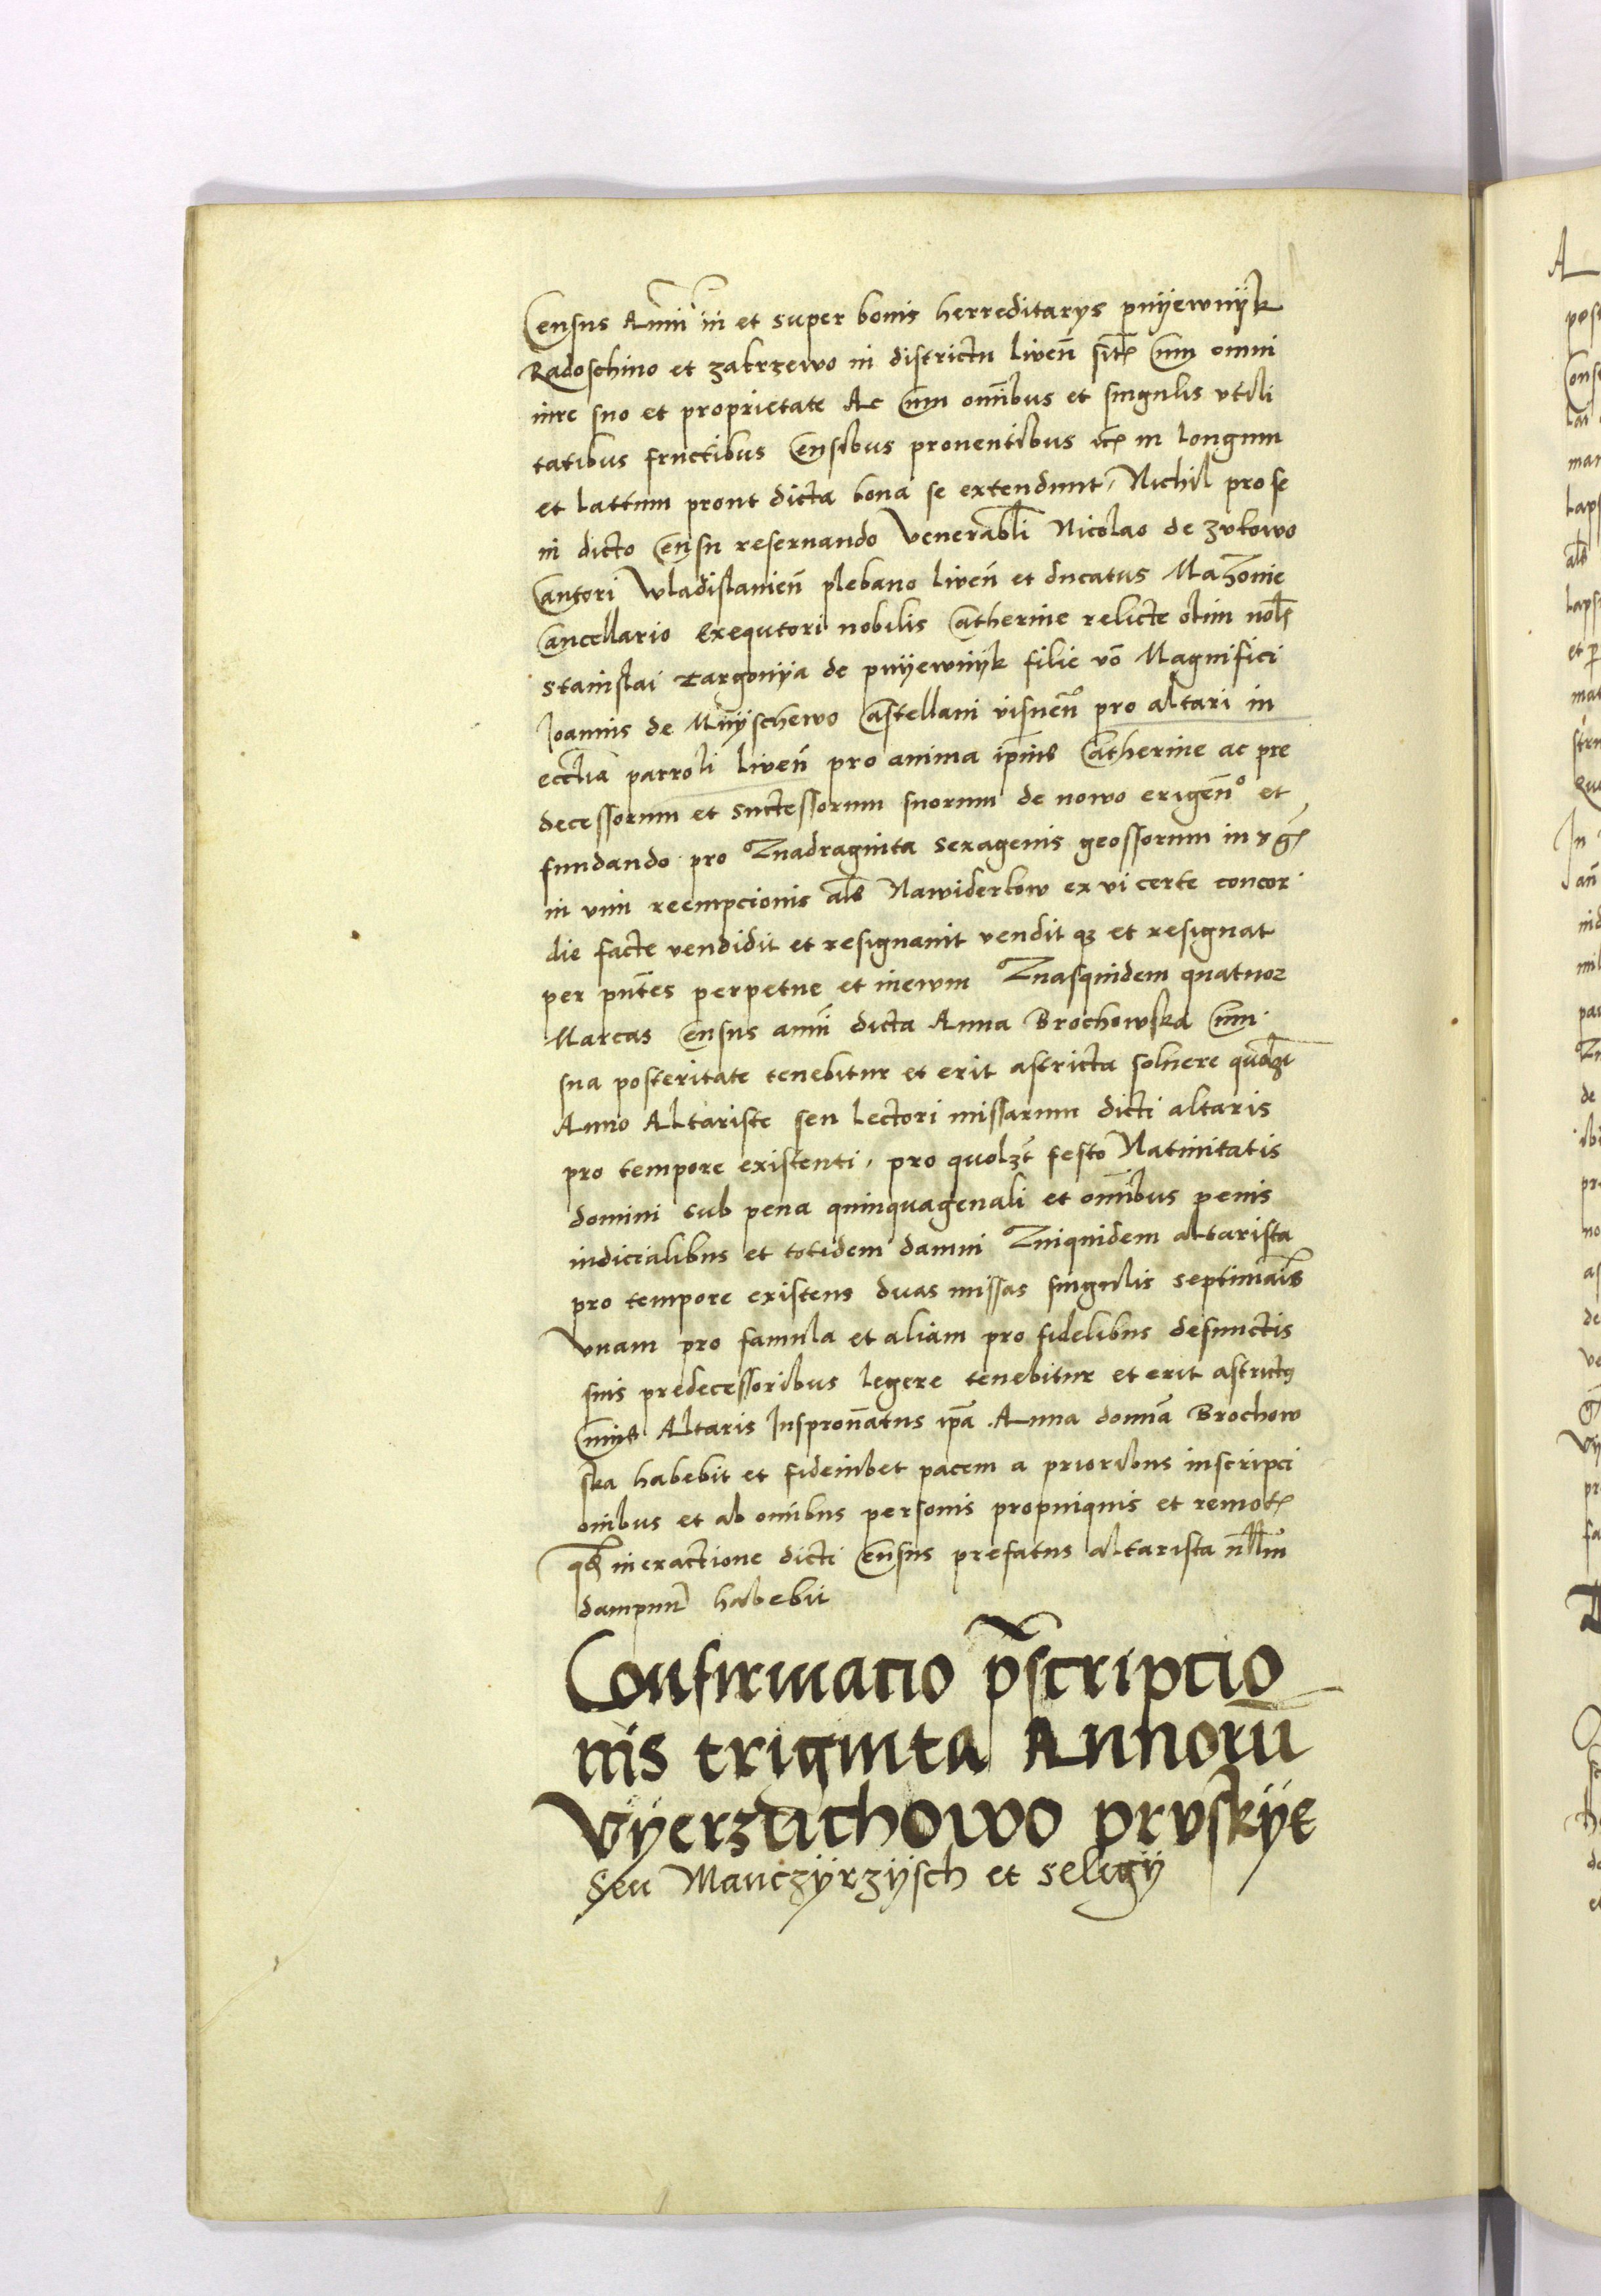 Census Annui in et super bonis herreditarys pnyewnyk
Radoschino et zakrzewo in districtu liven̄ sitꝭ Cum omni
iure suo et proprietate Ac Cum om̄ibus et singulis vtili
tatibus fructibus Censibus prouentibus itꝭ in longum
et lattum prout dicta bona se extendunt, Nichil pro se
in dicto Censu reseruando Venerabli Nicolao de zukowo
Cantori Wladislauien̄ plebano liven̄ et ducatus Mazouie
Cancellario Exequtori nobilis Catherine relicte olim nobl̄
stanislai Targonya de pnyewnyk filie vō Magnifici
Joannis de Mnyschewo Castellani visnen̄ pro altari in
eccl̄ia parroli liven̄ pro anima ip̄ius Catherine ac pre
decessorum et suctessorum suorum de nowo erigen̄º et
fundando pro Quadraginta sexagenis geossorum in rḡꝭ
in vim reempcionis als̄ Nawiderkow ex vi certe concor
die facte vendidit et resignauit vendit qꝫ et resignat
per pn̄tes perpetue et inewm Quasquidem quatuor
Marcas Census annui dicta Anna Brochowska Cum
sua posteritate tenebitur et erit astricta soluere quolꝫt
Anno Altariste seu lectori missarum dicti altaris
pro tempore existenti, pro quolꝫt festo Natiuitatis
domini sub pena quinquagenali et om̄ibus penis
iudicialibus et totidem damni Quiquidem altarista
pro tempore existens duas missas singulis septimais̄
vnam pro famula et aliam pro fidelibus defunctis
suis predecessoribus legere tenebitur et erit astrictꝰ
Cuius Altaris Juspron̄atus ip̄a Anna domna Brochow
ska habebit et fideiubet pacem a prioribus inscripci
onibus et ab omibus personis propniquis et remotꝭ
qꝫ in exactione dicti Census prefatus altarista nllm̄
dampnum̄ habebit
Confirmatio p̄scriptio
nis triginta Annorū
Vyerzdichowo prvskye
Seu Mauczyrzysch et seligy